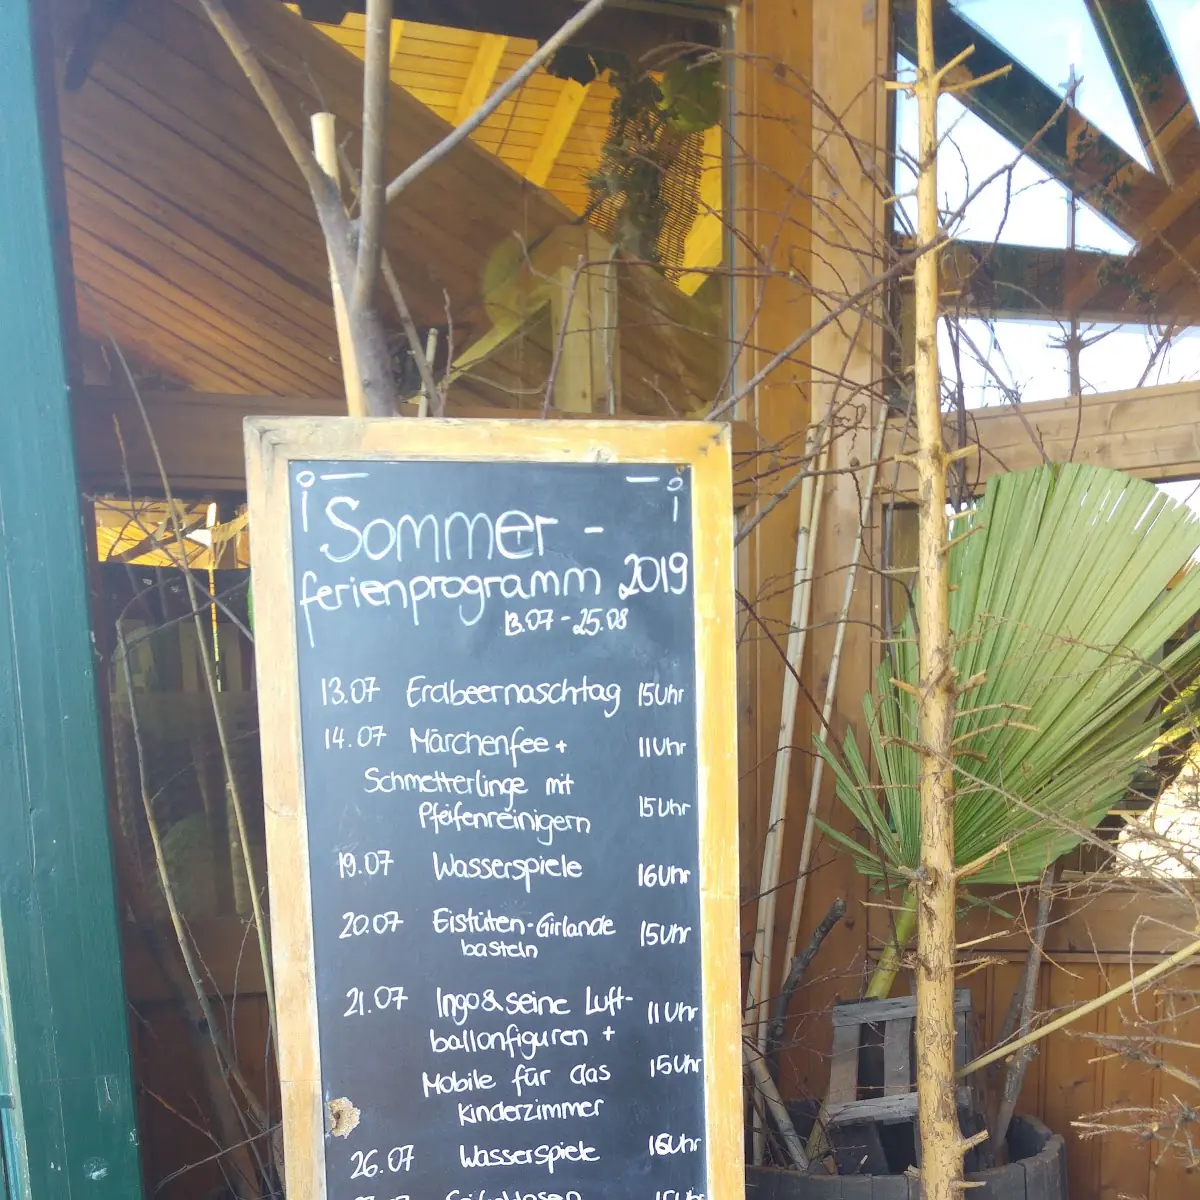 Sommer -
ferienprogramm 2019
13.07 - 25.08
13.07 Erdbeernaschtag 15Uhr
14.07 Märchenfee + 11Uhr
Schmetterlinge mit
Pfeifenreinigern 15Uhr
19.07 Wasserspiele 16Uhr
20.07 Eistüten-Girlande 15Uhr
basteln
21.07 Ingo & seine Luft- 11Uhr
ballonfiguren +
Mobile für das 15Uhr
Kinderzimmer
26.07 Wasserspiele 16Uhr